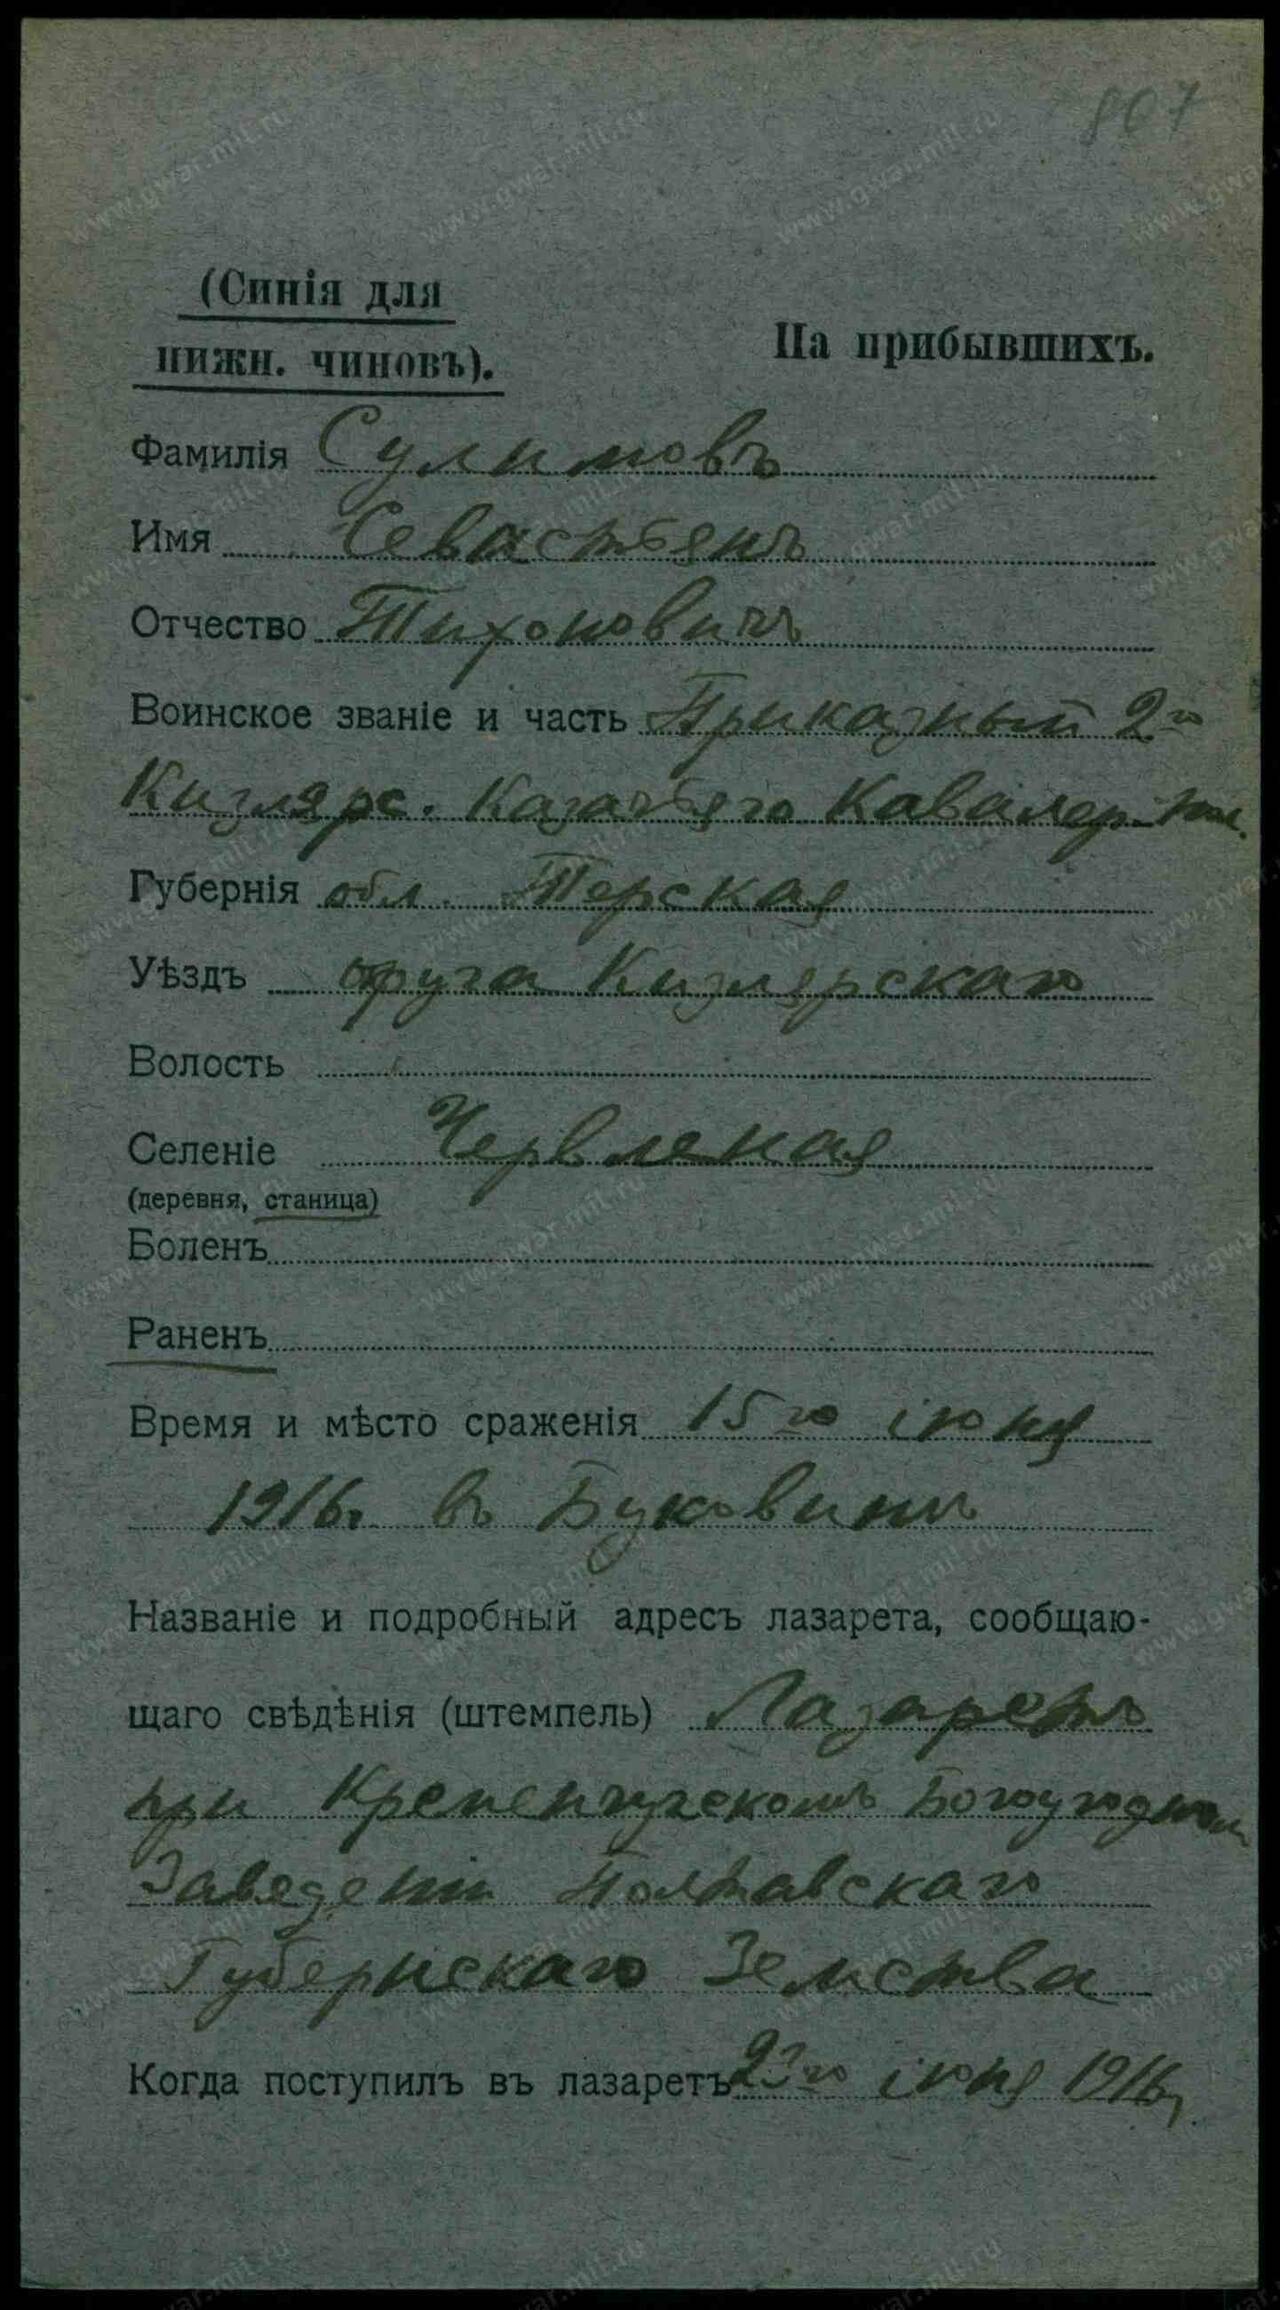 807
(Синія для
нижн. чиновъ).
На прибывшихъ.
Фамилія Сулимовъ
Имя Севастьянъ
Отчество Тихоновичъ
Воинское званіе и часть Приказный 2го
Кизлярс. Казачьяго Кавалер.
Губернія обл. Терская
Уѣздъ округа Кизлярскаго
Волость
Селеніе Червленая
(деревня, станица)
Боленъ
Раненъ
Время и мѣсто сраженія 15го іюня
1916г. въ Буковинѣ
Названіе и подробный адресъ лазарета, сообщаю-
щаго свѣдѣнія (штемпель) Лазаретъ
при Кременчугскомъ Богоугодномъ
Заведеніи Полтавскаго
Губернскаго Земства
Когда поступилъ въ лазаретъ 23го іюня 1916г.